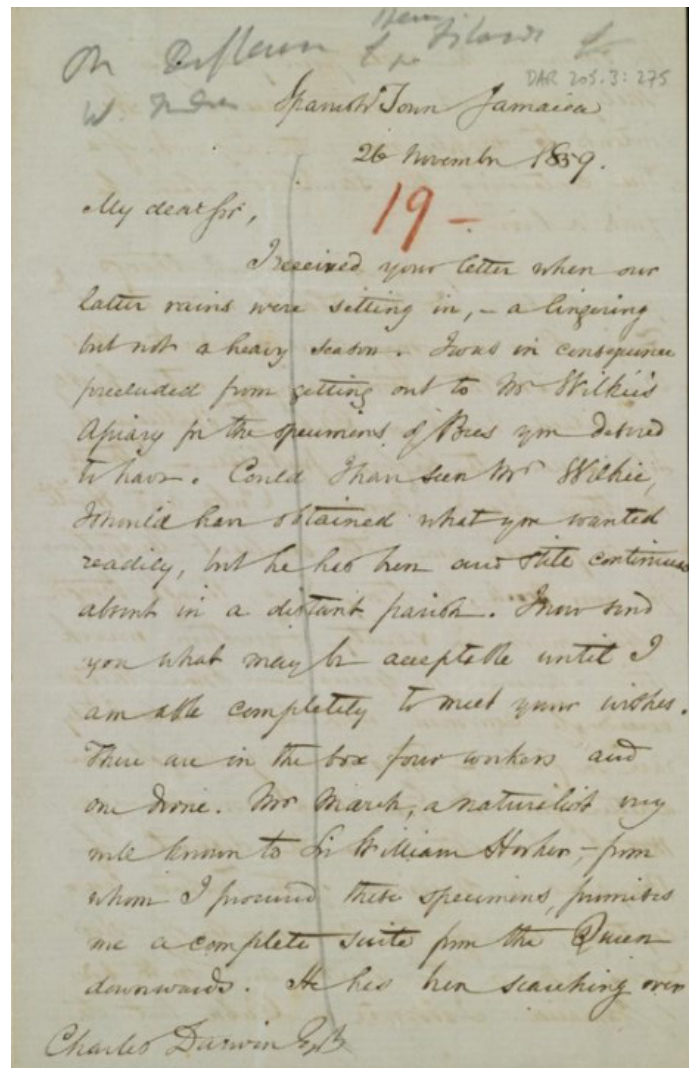 On
DAR 205.3: 275
Spanish Town Jamaica
26 November 1859.
19 —
My dear Sir,
I received your letter when our
latter rains were setting in, – a lingering
but not a heavy season. I was in consequence
precluded from getting out to Mr Wilkie's
Apiary for the specimens of Bees you desired
to have. Could I have seen Mr Wilkie,
I would have obtained what you wanted
readily, but he has been and still continues
absent in a distant parish. I now send
you what may be acceptable until I
am able completely to meet your wishes.
There are in the box four workers and
one drone. Mr March, a naturalist very
well known to Sir William Hooker, – from
whom I procured these specimens, promises
me a complete suite from the Queen
downwards. He has been searching over
Charles Darwin Esqr